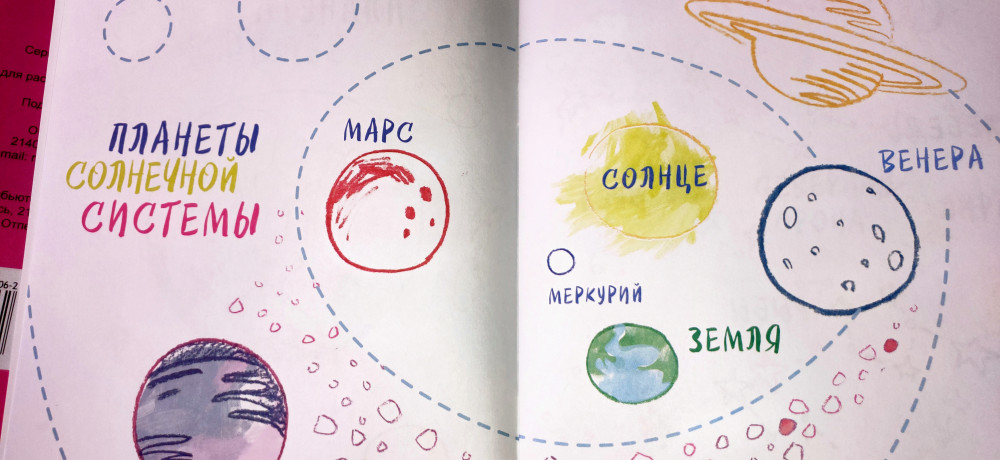 ПЛАНЕТЫ
СОЛНЕЧНОЙ
СИСТЕМЫ
МАРС
СОЛНЦЕ
ВЕНЕРА
МЕРКУРИЙ
ЗЕМЛЯ
Сер
для рас
2140
mail:
06-2